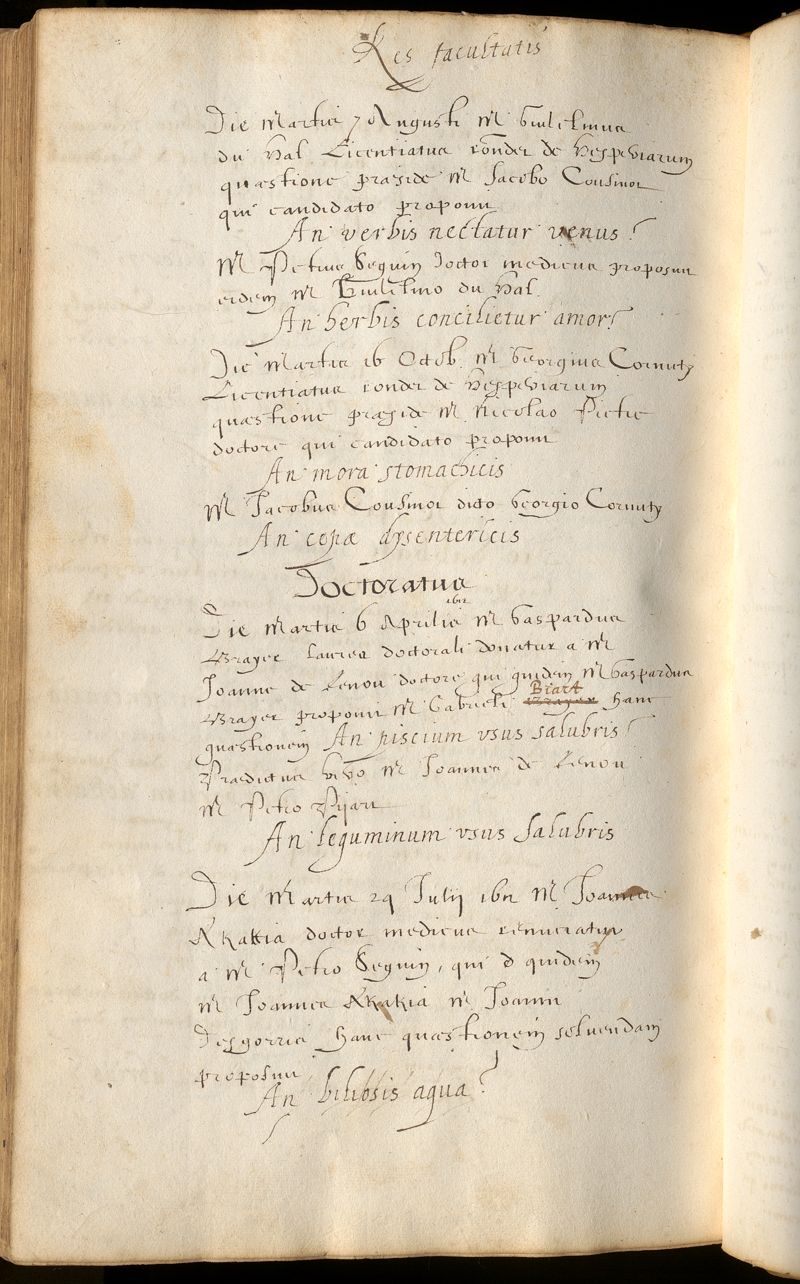 Res facultatis
Die Martis 7 Augusti M Guilelmus
du Val Licentiatus respondet de Hesperiarum
quæstione præside M Jacobo Cousinot
qui candidato proponit
An verbis nectatur venus?
M Petrus Seguin Doctor medicus proposuit
eidem M Guilelmo du Val.
An herbis concilietur amor?
Die Martis 16 Octob. M Georgius Cornuty
Licentiatus respondet de Hesperiarum
quæstione præside M. Nicolao Pietre
doctore qui candidato proponit
An mora stomachicis
M Jacobus Cousinot dicto Georgio Cornuty
An cepæ dysentericis
Doctoratus
1612
Die Martis 6 Aprilis M Gaspardus
Brayer laurea doctorali donatur a M
Joanne de Lenou doctore qui quidem M Gaspardus
Brayer proponit M Gabrieli Brayer Biart hanc
quæstionem An piscium usus salubris?
Prædictus vero M Joannes de Lenou
M Petro Pijart
An leguminum usus salubris
Die Martis 24 Julij 1612 M Joannes
Akakia doctor medicus renunciatur
a M Petro Seguin, qui quidem
M Joannes Akakia M Joanni
Desgorris hanc quæstionem solvendam
proposuit
An biliosis aqua?